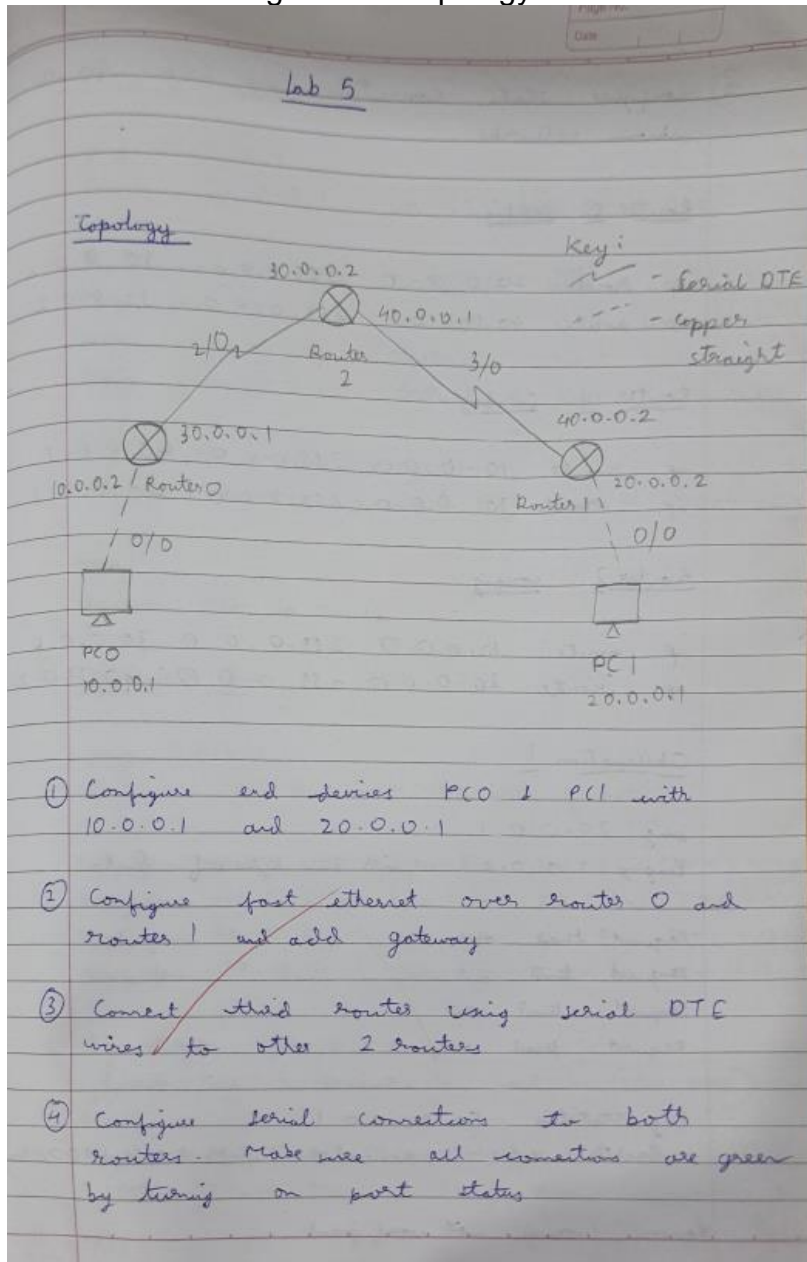 Page No.
Date
Lab 5
Topology
Key:
30.0.0.2
- Serial DTE
40.0.0.1
- copper
straight
2/0
Router
2
3/0
40.0.0.2
30.0.0.1
10.0.0.2
Router 0
20.0.0.2
Router 1
0/0
0/0
PC0
PC1
10.0.0.1
20.0.0.1
① Configure end devices PC0 & PC1 with
10.0.0.1 and 20.0.0.1
② Configure fast ethernet over router 0 and
router 1 and add gateway
③ Connect third router using serial DTE
wires to other 2 routers
④ Configure serial connections to both
routers. Make sure all connections are green
by turning on port status